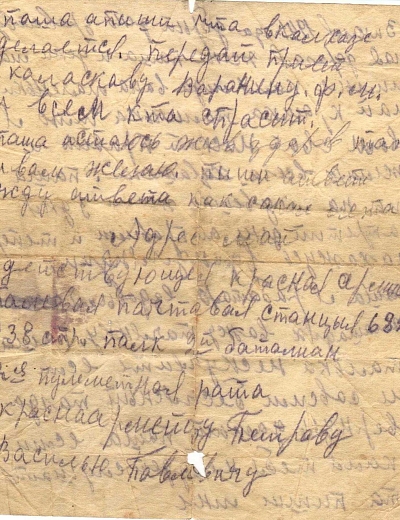 паша апиши кта вкалхозе
делаетсь. передай привет
каласкову варанину. ф. н.
всем кта спрасит.
паша астаюсь жив здаров таво
и вам желаю. пиши ответ
жду ответа
адрес мой
действующея красная армия
палевая пачтавая станцыя 68
38 стр. палк баталиан
пулеметная рата
красноармейцу Петрову
Василью Павловичу